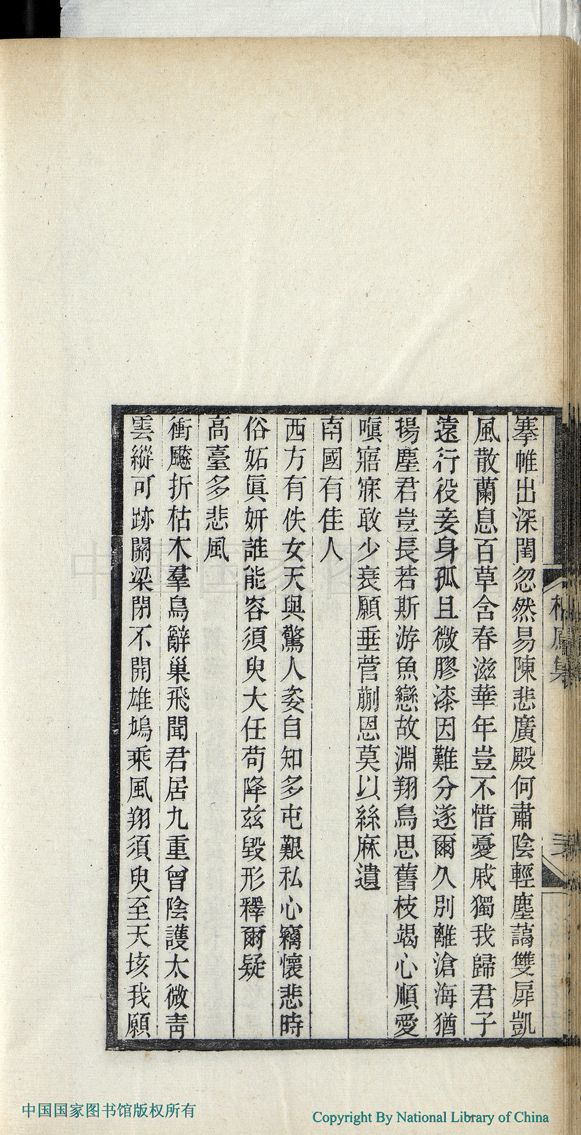 搴帷出深閨忽然易陳悲廣殿何肅陰輕塵藹雙扉凱
風散蘭息百草含春滋華年豈不惜憂戚獨我歸君子
遠行役妾身孤且微膠漆因難分遂爾久別離滄海猶
揚塵君豈長若斯游魚戀故淵翔鳥思舊枝竭心順愛
嗔寤寐敢少衰願垂菅蒯恩莫以絲麻遺
南國有佳人
西方有佚女天與驚人姿自知多屯艱私心竊懷悲時
俗妬眞妍誰能容須臾大任苟降兹毀形釋爾疑
高臺多悲風
衝飈折枯木羣鳥辭巢飛聞君居九重曾陰護太微靑
雲縱可跡關梁閉不開雄鳩乘風翔須臾至天垓我願
中国国家图书馆版权所有
Copyright By National Library of China